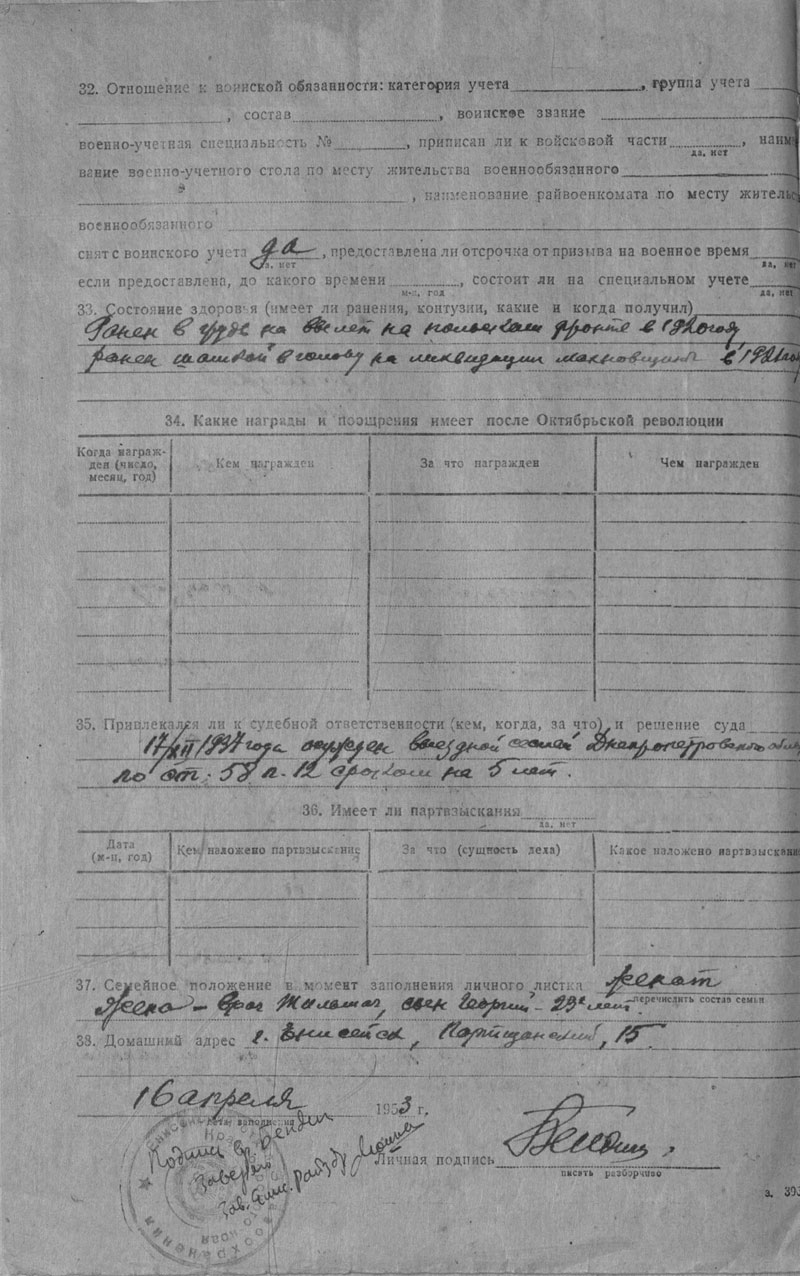 32. Отношение к воинской обязанности: категория учета , группа учета
, состав , воинское звание
военно-учетная специальность № , приписан ли к войсковой части , наим
да, нет
вание военно-учетного стола по месту жительства военнообязанного
, наименование райвоенкомата по месту жительс
военнообязанного
снят с воинского учета да , предоставлена ли отсрочка от призыва на военное время
да, нет да, нет
если предоставлена, до какого времени , состоит ли на специальном учете
м-ц, год да, нет
33. Состояние здоровья (имеет ли ранения, контузии, какие и когда получил)
Ранен в грудь на вылет на польском фронте в 1920 году
ранен шашкой в голову на ликвидации махновщины в 1921
34. Какие награды и поощрения имеет после Октябрьской революции
Когда награж-
ден (число,
месяц, год) Кем награжден За что награжден Чем награжден
35. Привлекался ли к судебной ответственности (кем, когда, за что) и решение суда
17/XII 1937 года осужден выездной сессией Днепропетровского обл
по ст. 58 п. 12 сроком на 5 лет.
36. Имеет ли партвзыскания
да, нет
Дата
(м-ц, год) Кем наложено партвзыскание За что (сущность дела) Какое наложено партвзыскани
37. Семейное положение в момент заполнения личного листка женат
перечислить состав семьи
Жена – врач сын Георгий – 23 лет
38. Домашний адрес г. Енисейск, 15
16 апреля 1953 г.
дата заполнения
Личная подпись
писать разборчиво
Заверяю
з. 393